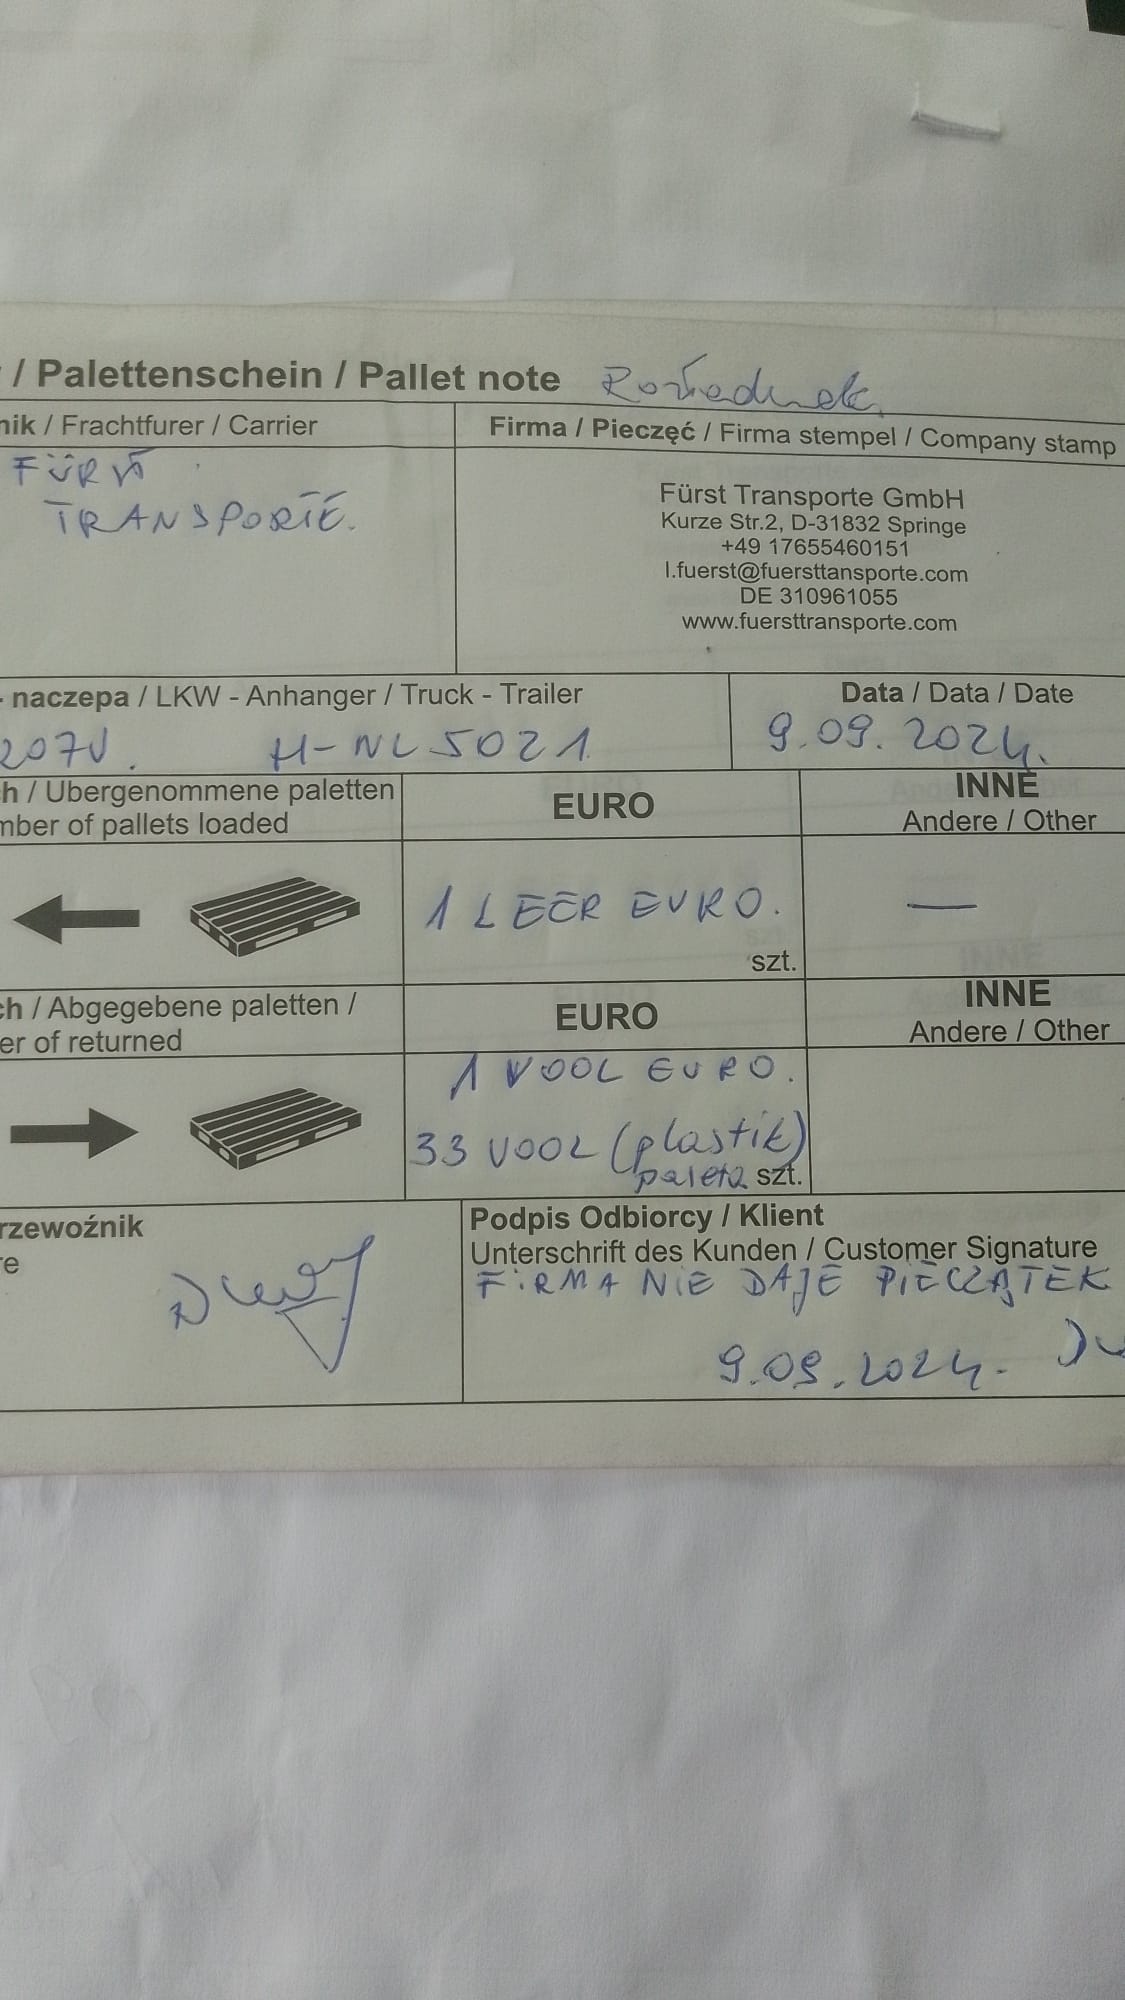 / Palettenschein / Pallet note Rozładunek
nik / Frachtfurer / Carrier
Firma / Pieczęć / Firma stempel / Company stamp
TRANSPORTE.
Fürst Transporte GmbH
Kurze Str.2, D-31832 Springe
+49 17655460151
l.fuerst@fuersttansporte.com
DE 310961055
www.fuersttransporte.com
- naczepa / LKW - Anhanger / Truck - Trailer
Data / Data / Date
207V. H-NL 5021
9.09.2024.
ch / Ubergenommene paletten
mber of pallets loaded
EURO
INNE
Andere / Other
1 LEER EURO.
—
szt.
ch / Abgegebene paletten /
er of returned
EURO
INNE
Andere / Other
1 VOOL EURO.
33 VOOL (plastik)
paleta szt.
rzewoźnik
e
Podpis Odbiorcy / Klient
Unterschrift des Kunden / Customer Signature
FIRMA NIE DAJE PIECZĄTEK
9.09.2024.